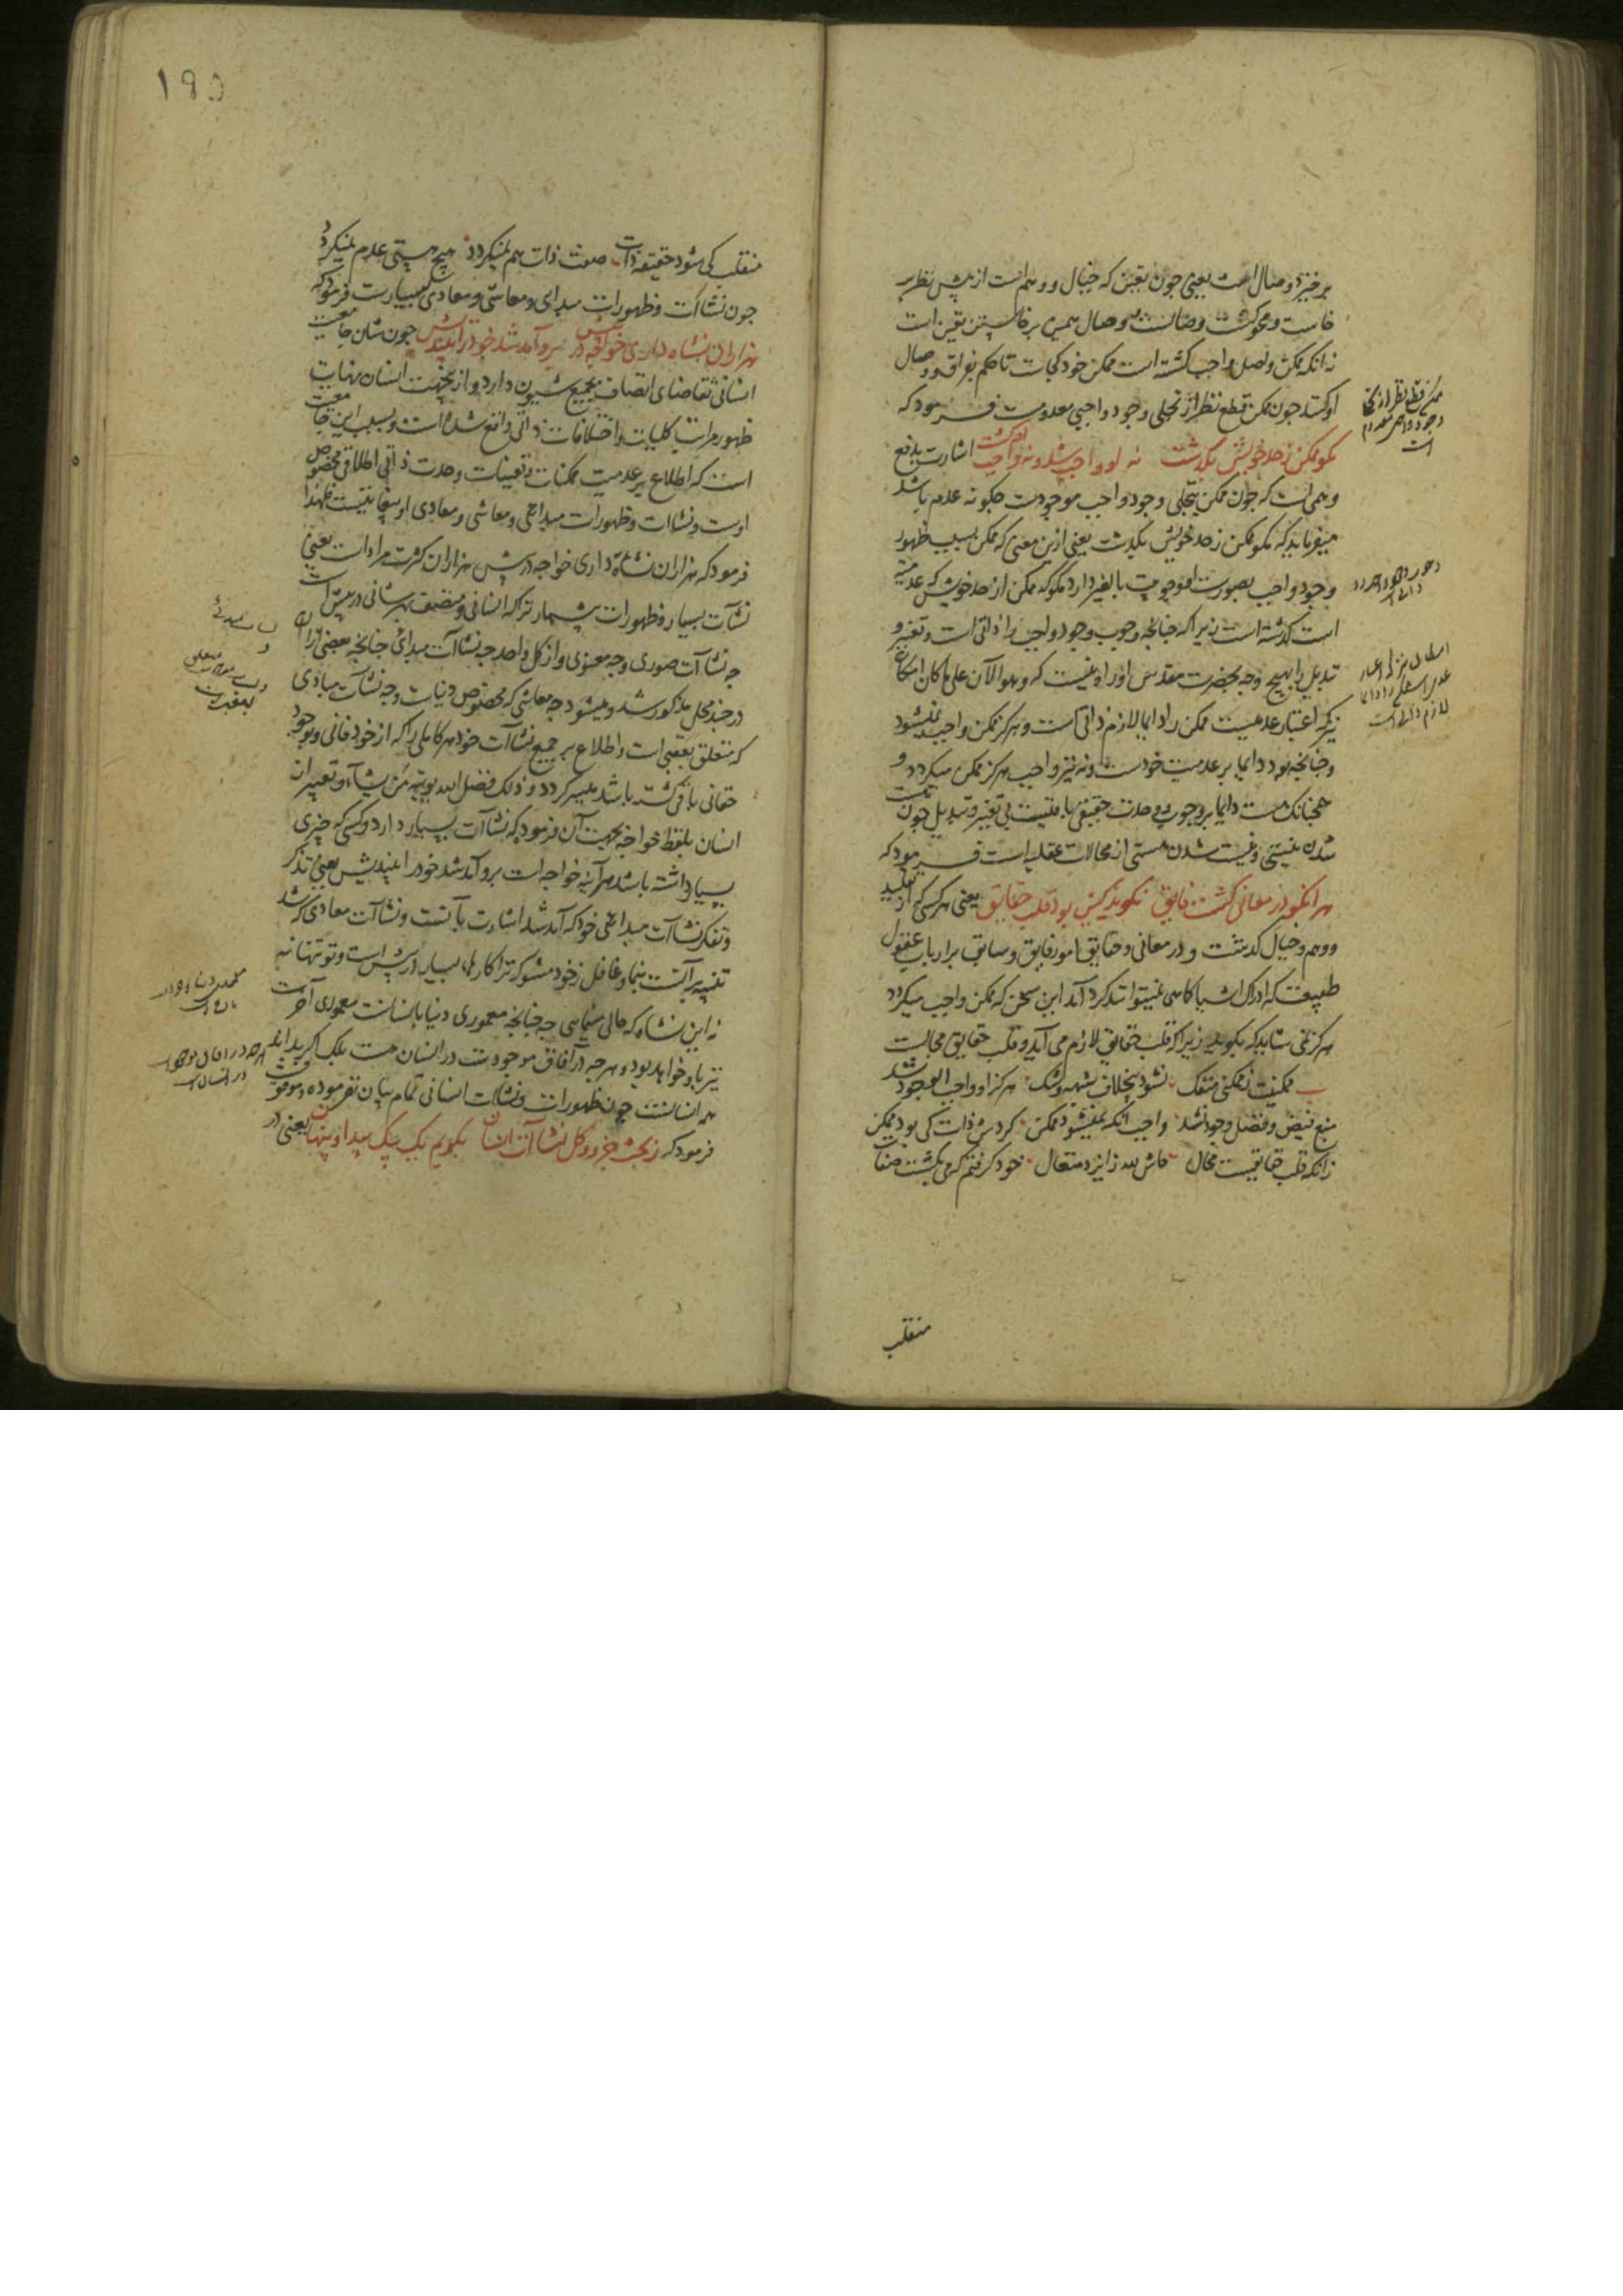 برخیزد وصال است یعنی چون تعین که خیال و وهم است از پیش نظر بر
خاست و محو گشت وصالست و وصال همین برخاستن تعین است
نه آنکه ممکن واصل واجب گشته است ممکن خود کجاست تا حکم بفراق و وصال
او کنند چون ممکن قطع نظر از تجلی وجود واجبی معدومست فرمود که
مگو ممکن ز حد خویش بگذشت نه او واجب شد و نه واجب او گشت اشارت بدفع
وهمی است که چون ممکن بتجلی وجود واجب موجودست چگونه عدم باشد
میفرماید که مگو ممکن ز حد خویش بگذشت یعنی ازین معنی که ممکن بسبب ظهور
وجود واجب بصورت او وجوبیت بالغیر دارد مگو که ممکن از حد خویش که عدمیه
است گذشته است زیرا که چنانچه وجوب وجود واجب را ذاتی است و تغیر و
تبدیل را بهیچ وجه بحضرت مقدس او راه نیست که و هو الآن علی ما کان امکان
نیز که اعتبار عدمیست ممکن را دایما لازم ذاتی است و هرگز ممکن واجب نمیشود
و چنانچه بود دایما بر عدمیت خودست و نه نیز واجب هرگز ممکن میگردد و
همچنانکه هست دایما بر وجوب و وحدت حقیقی باقیست بی تغیر و تبدیل چون هست
شدن نیستی و نیست شدن هستی از محالات عقلیه است فرمود که
هر آنکو در معانی گشت فایق نگوید کین بود قلب حقایق یعنی هر کسی که از تقلید
و وهم و خیال گذشت و در معانی و حقایق امور فایق و سابق بر ارباب عقول
طبیعت که ادراک اشیا کماهی نمیتوانند کرد آمد این سخن که ممکن واجب میگردد
هرگز نمی شاید که بگوید زیرا که قلب حقایق لازم می آید و قلب حقایق محالست
ممکنیت ز ممکنی منفک نشود بیخلاف شبهه و شک هرگز او واجب الوجود نشد
منبع فیض و فضل وجود نشد واجب آنکه نمیشود ممکن گردش ذات کی بود ممکن
زانکه قلب حقایقست محال حاش لله ز ایزد متعال خود گرفتم که می بگشت صفات
منقلب
۱۹۵
منقلب کی شود حقیقة ذات صفت ذات هم نمیگردد هیچ هستی عدم نمیگردد
چون نشاآت و ظهورات مبدای و معاشی و معادی بسیارست فرمود که
هزاران نشاه داری خواجه در پیش برو آمد شد خود را بیندیش چون شان جامعیت
انسانی تقاضای اتصاف بجمیع شیون دارد و از این جهت انسان نهایت
ظهور مراتب کلیات و اختلافات ذاتی واقع شده است و بسبب این جامعیت
است که اطلاع بر عدمیت ممکنات و تعینات وحدت ذاتی اطلاقی مخصوص
اوست و نشاات و ظهورات مبدائی و معاشی و معادی او بیغایتست لهذا
فرمود که هزاران نشاه داری خواجه در پیش هزاران کثرت مراد است یعنی
نشاآت بسیار و ظهورات بیشمار ترا که انسانی و متصف بهر شانی در پیش است
چه نشاآت صوری و چه معنوی و از کل واحد چه نشاآت مبدای چنانچه بعضی از آن
در چند محل مذکور شد و میشود چه معاشی که مخصوص دنیاست و چه نشاآت معادی
که متعلق بعقبی است و اطلاع بر جمیع نشاآت خود هر کاملی را که از خود فانی و بوجود
حقانی باقی گشته باشد میسر گردد و ذلک فضل الله یوتیه من یشاء و تعبیر از
انسان بلفظ خواجه بجهت آن فرمود که نشاآت بسیار دارد و کسی که چیزی
بسیار داشته باشد هر آینه خواجه است برو آمد شد خود را بیندیش یعنی تذکر
و تفکر نشاآت مبدائی خود که آمد شد اشارت بآنست و نشاآت معادی که شد
تنبیه بر آنست بنما و غافل ز خود مشو که ترا کارهای بسیار در پیش است و تو تنها نه
نه این نشاه که حالی میبینی چه چنانچه معموری دنیا بانسانست معموری آخرت
نیز باو خواهد بود و هر چه در آفاق موجودست در انسان هست بلکه اگر بداند
همه انسانست چون ظهورات و نشاآت انسانی تمام بیان نفرموده و موقوف
فرمود که ز بحث جزو و کل نشاآت انسان بگویم یک بیک پیدا و پنهان یعنی در